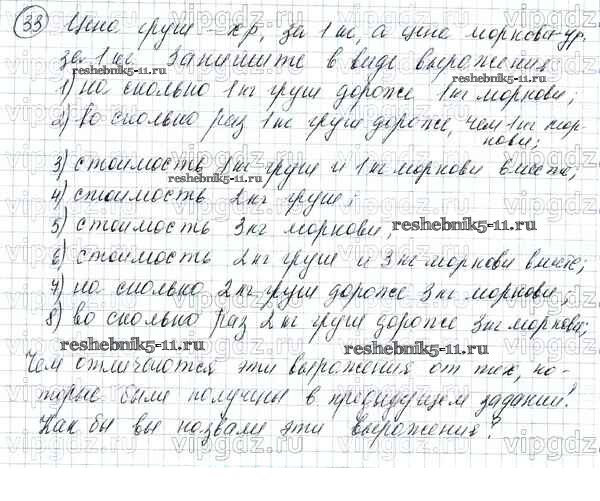 33 Цена груш - x р. за 1 кг, а цена моркови - y р.
за 1 кг. Запишите в виде выражения
reshebnik5-11.ru
1) на сколько 1 кг груш дороже 1 кг моркови;
2) во сколько раз 1 кг груш дороже, чем 1 кг мор-
нови;
3) стоимость 1 кг груш и 1 кг моркови вместе;
reshebnik5-11.ru
4) стоимость 2 кг груш;
5) стоимость 3 кг моркови;
reshebnik5-11.ru
6) стоимость 2 кг груш и 3 кг моркови вместе;
7) на сколько 2 кг груш дороже 3 кг моркови;
8) во сколько раз 2 кг груш дороже 3 кг моркови;
reshebnik5-11.ru reshebnik5-11.ru
Чем отличаются эти выражения от тех, ко-
торые были получены в предыдущем задании?
Как бы вы назвали эти выражения?
vipgdz.ru